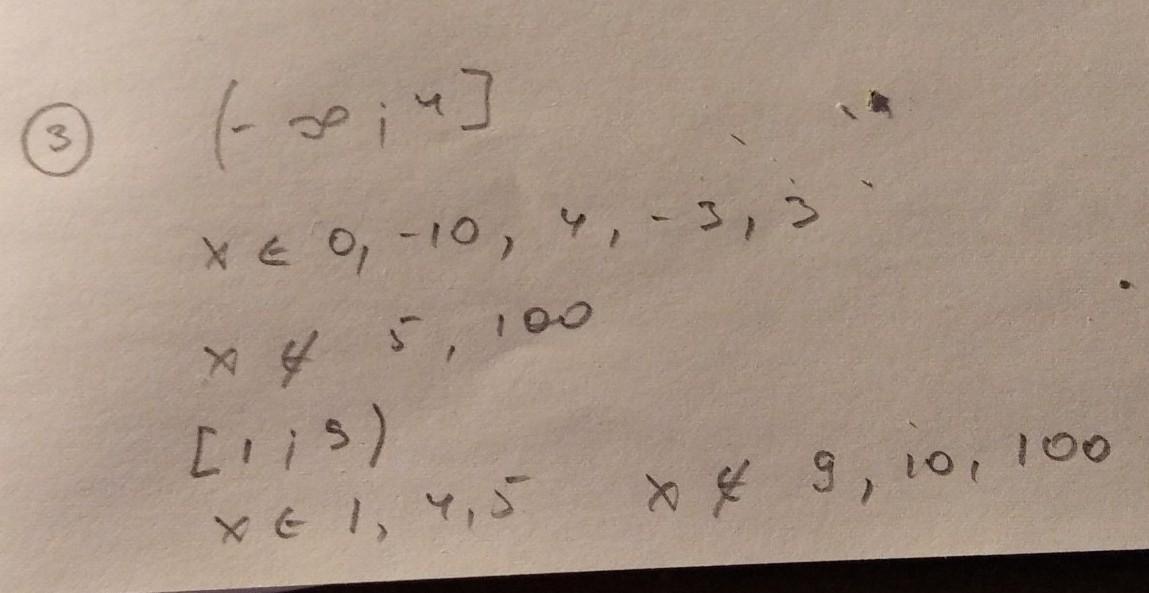 3 (-∞; 4]
x ∈ 0, -10, 4, -3, 3
x ∉ 5, 100
[1; 9)
x ∈ 1, 4, 5 x ∉ 9, 10, 100